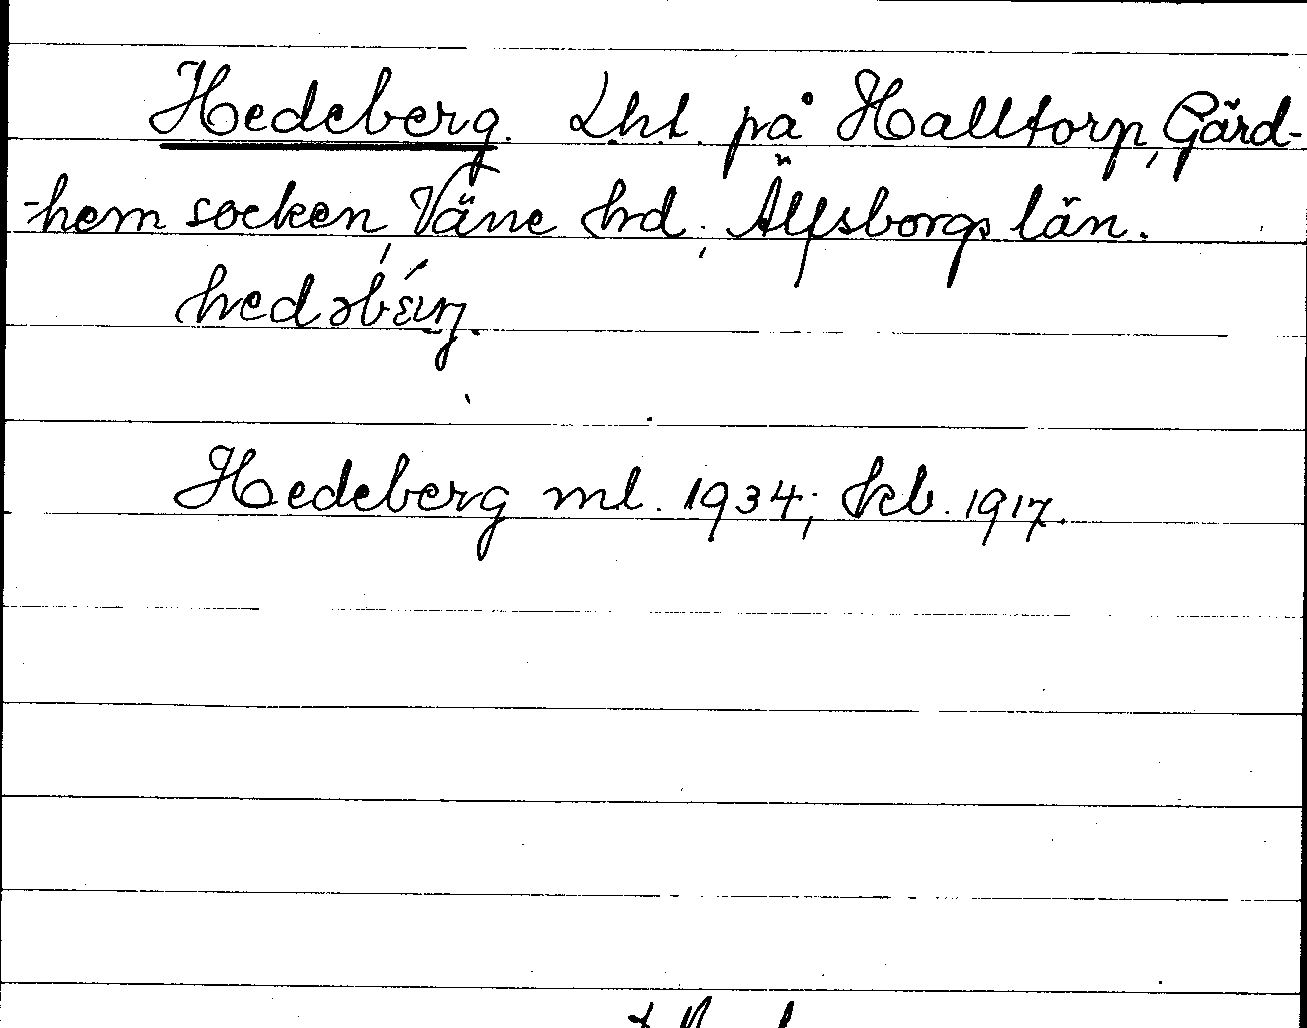 Hedeberg. Lht. på Halltorp, Gärd-
-hem socken, Väne hd; Älfsborgs län.
Hedeberg ml. 1934; Jeb. 1917.